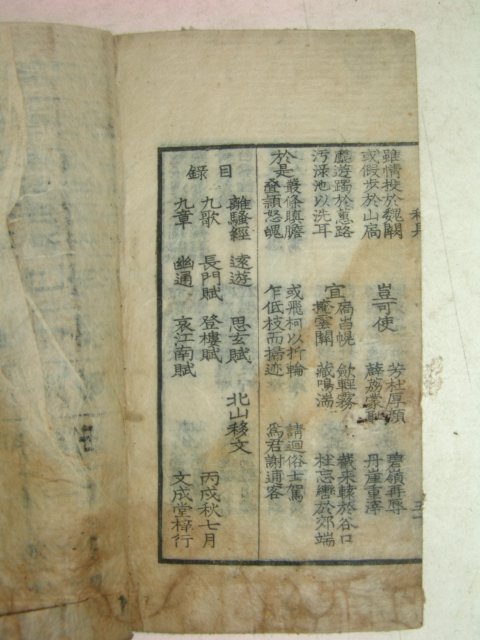 雖情投於魏闕
或假步於山扃
豈可使
芳杜厚顏
薜荔蒙恥
碧嶺再辱
丹崖重滓
塵遊躅於蕙路
汚淥池以洗耳
宜
扃岫幌
掩雲關
斂輕霧
藏鳴湍
截來轅於谷口
杜妄轡於郊端
於是
叢條瞋膽
疊穎怒魄
或飛柯以折輪
乍低枝而掃迹
請迴俗士駕
爲君謝逋客
目錄
離騷經 遠遊 思玄賦 北山移文
九歌 長門賦 登樓賦
九章 幽通 哀江南賦
丙戌秋七月
文成堂梓行